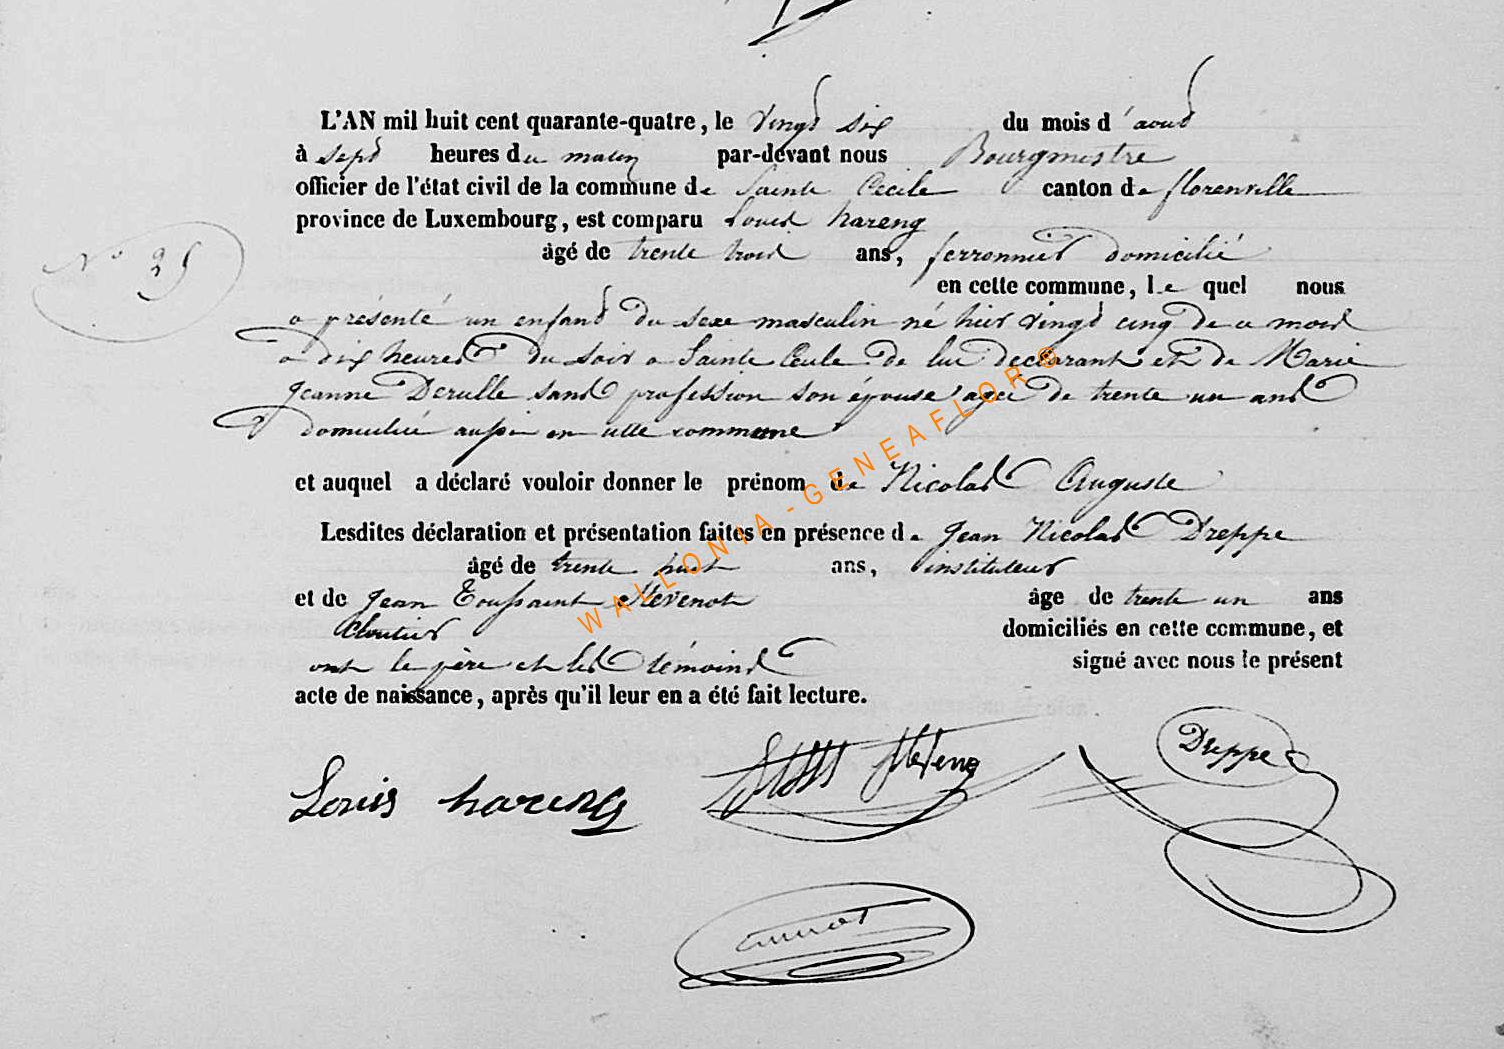 L'AN mil huit cent quarante-quatre, le vingt six du mois d'aout
à sept heures du matin par-devant nous Bourgmestre
officier de l'état civil de la commune de Sainte Cécile canton de florenville
province de Luxembourg, est comparu Louis hareng
N° 25
âgé de trente trois ans, ferronnier domicilié
en cette commune, le quel nous
a présenté un enfant du sexe masculin né hier vingt cinq de ce mois
a dix heures du soir a Sainte Cecile de lui déclarant et de Marie
Jeanne Derulle sans profession son épouse agée de trente un ans
domiciliée aussi en cette commune
et auquel a déclaré vouloir donner le prénom de Nicolas Auguste
Lesdites déclaration et présentation faites en présence de Jean Nicolas Dreppe
âgé de trente huit ans, instituteur
et de Jean Toussaint Stevenot âge de trente un ans
cloutier domiciliés en cette commune, et
ont le père et les témoins signé avec nous le présent
acte de naissance, après qu'il leur en a été fait lecture.
WALLONIA-GENEAFLOR®
Louis hareng Dreppe